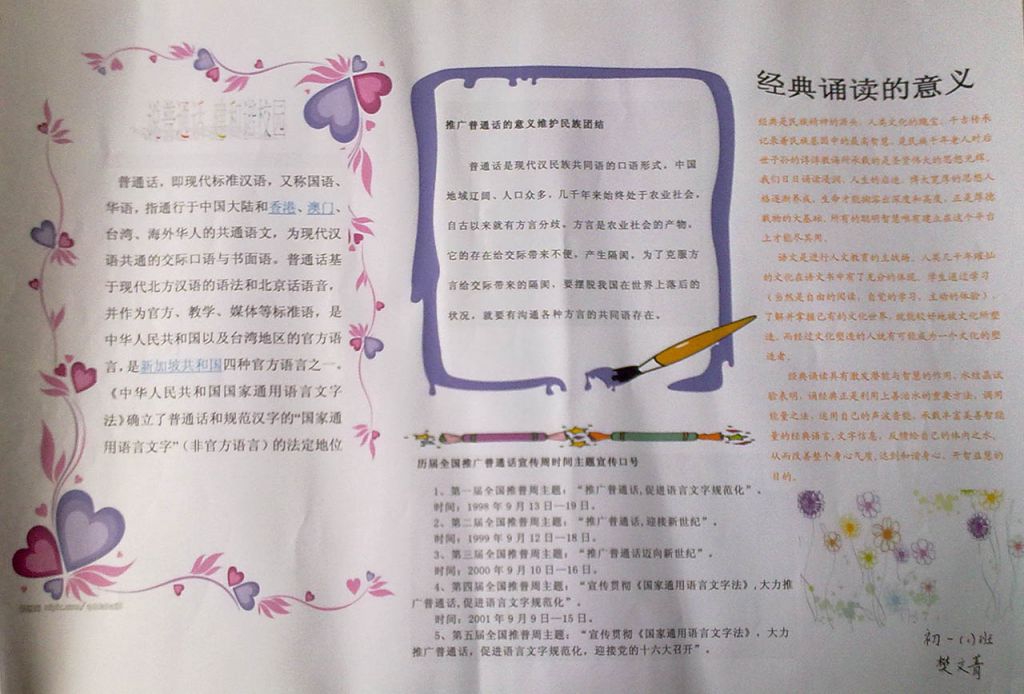 说普通话,建和谐校园
普通话，即现代标准汉语，又称国语、
华语，指通行于中国大陆和香港、澳门、
台湾、海外华人的共通语文，为现代汉
语共通的交际口语与书面语。普通话基
于现代北方汉语的语法和北京话语音，
并作为官方、教学、媒体等标准语，是
中华人民共和国以及台湾地区的官方语
言，是新加坡共和国四种官方语言之一。
《中华人民共和国国家通用语言文字
法》确立了普通话和规范汉字的“国家通
用语言文字”（非官方语言）的法定地位
推广普通话的意义维护民族团结
普通话是现代汉民族共同语的口语形式。中国
地域辽阔、人口众多，几千年来始终处于农业社会，
自古以来就有方言分歧。方言是农业社会的产物，
它的存在给交际带来不便，产生隔阂。为了克服方
言给交际带来的隔阂，要摆脱我国在世界上落后的
状况，就要有沟通各种方言的共同语存在。
历届全国推广普通话宣传周时间主题宣传口号
1、第一届全国推普周主题：“推广普通话,促进语言文字规范化”。
时间：1998年9月13日—19日。
2、第二届全国推普周主题：“推广普通话,迎接新世纪”。
时间：1999年9月12日—18日。
3、第三届全国推普周主题：“推广普通话迈向新世纪”。
时间：2000年9月10日—16日。
4、第四届全国推普周主题：“宣传贯彻《国家通用语言文字法》,大力推
广普通话,促进语言文字规范化”。
时间：2001年9月9日—15日。
5、第五届全国推普周主题：“宣传贯彻《国家通用语言文字法》，大力
推广普通话，促进语言文字规范化，迎接党的十六大召开”。
经典诵读的意义
经典是民族精神的源头、人类文化的瑰宝。千古传承
记录着民族基因中的最高智慧。是民族千年老人对后
世子孙的谆谆教诲所承载的是圣贤伟大的思想光辉。
我们日日诵读浸润，人生的启迪、博大宽厚的思想人
格逐渐养成。生命才能掬溶出深度和高度。正是厚德
载物的大基础。所有的聪明智慧唯有建立在这个平台
上才能尽其用。
语文是进行人文教育的主战场。人类几千年璀灿
的文化在语文书中有了充分的体现。学生通过学习
（当然是自由的阅读，自觉的学习，主动的体验），
了解并掌握已有的文化世界，就能较好地被文化所塑
造。而经过文化塑造的人就有可能成为一个文化的塑
造者。
经典诵读具有激发潜能与智慧的作用。水纹晶试
验表明，诵经典正是利用上善治水的重要方法，调用
能量之法，运用自己的声波音能，承载丰富美善智能
量的经典语言,文字信息，反馈给自己的体内之水。
从而改善整个身心气质,达到和谐身心、开智益慧的
目的。
初一(1)班
樊文菁